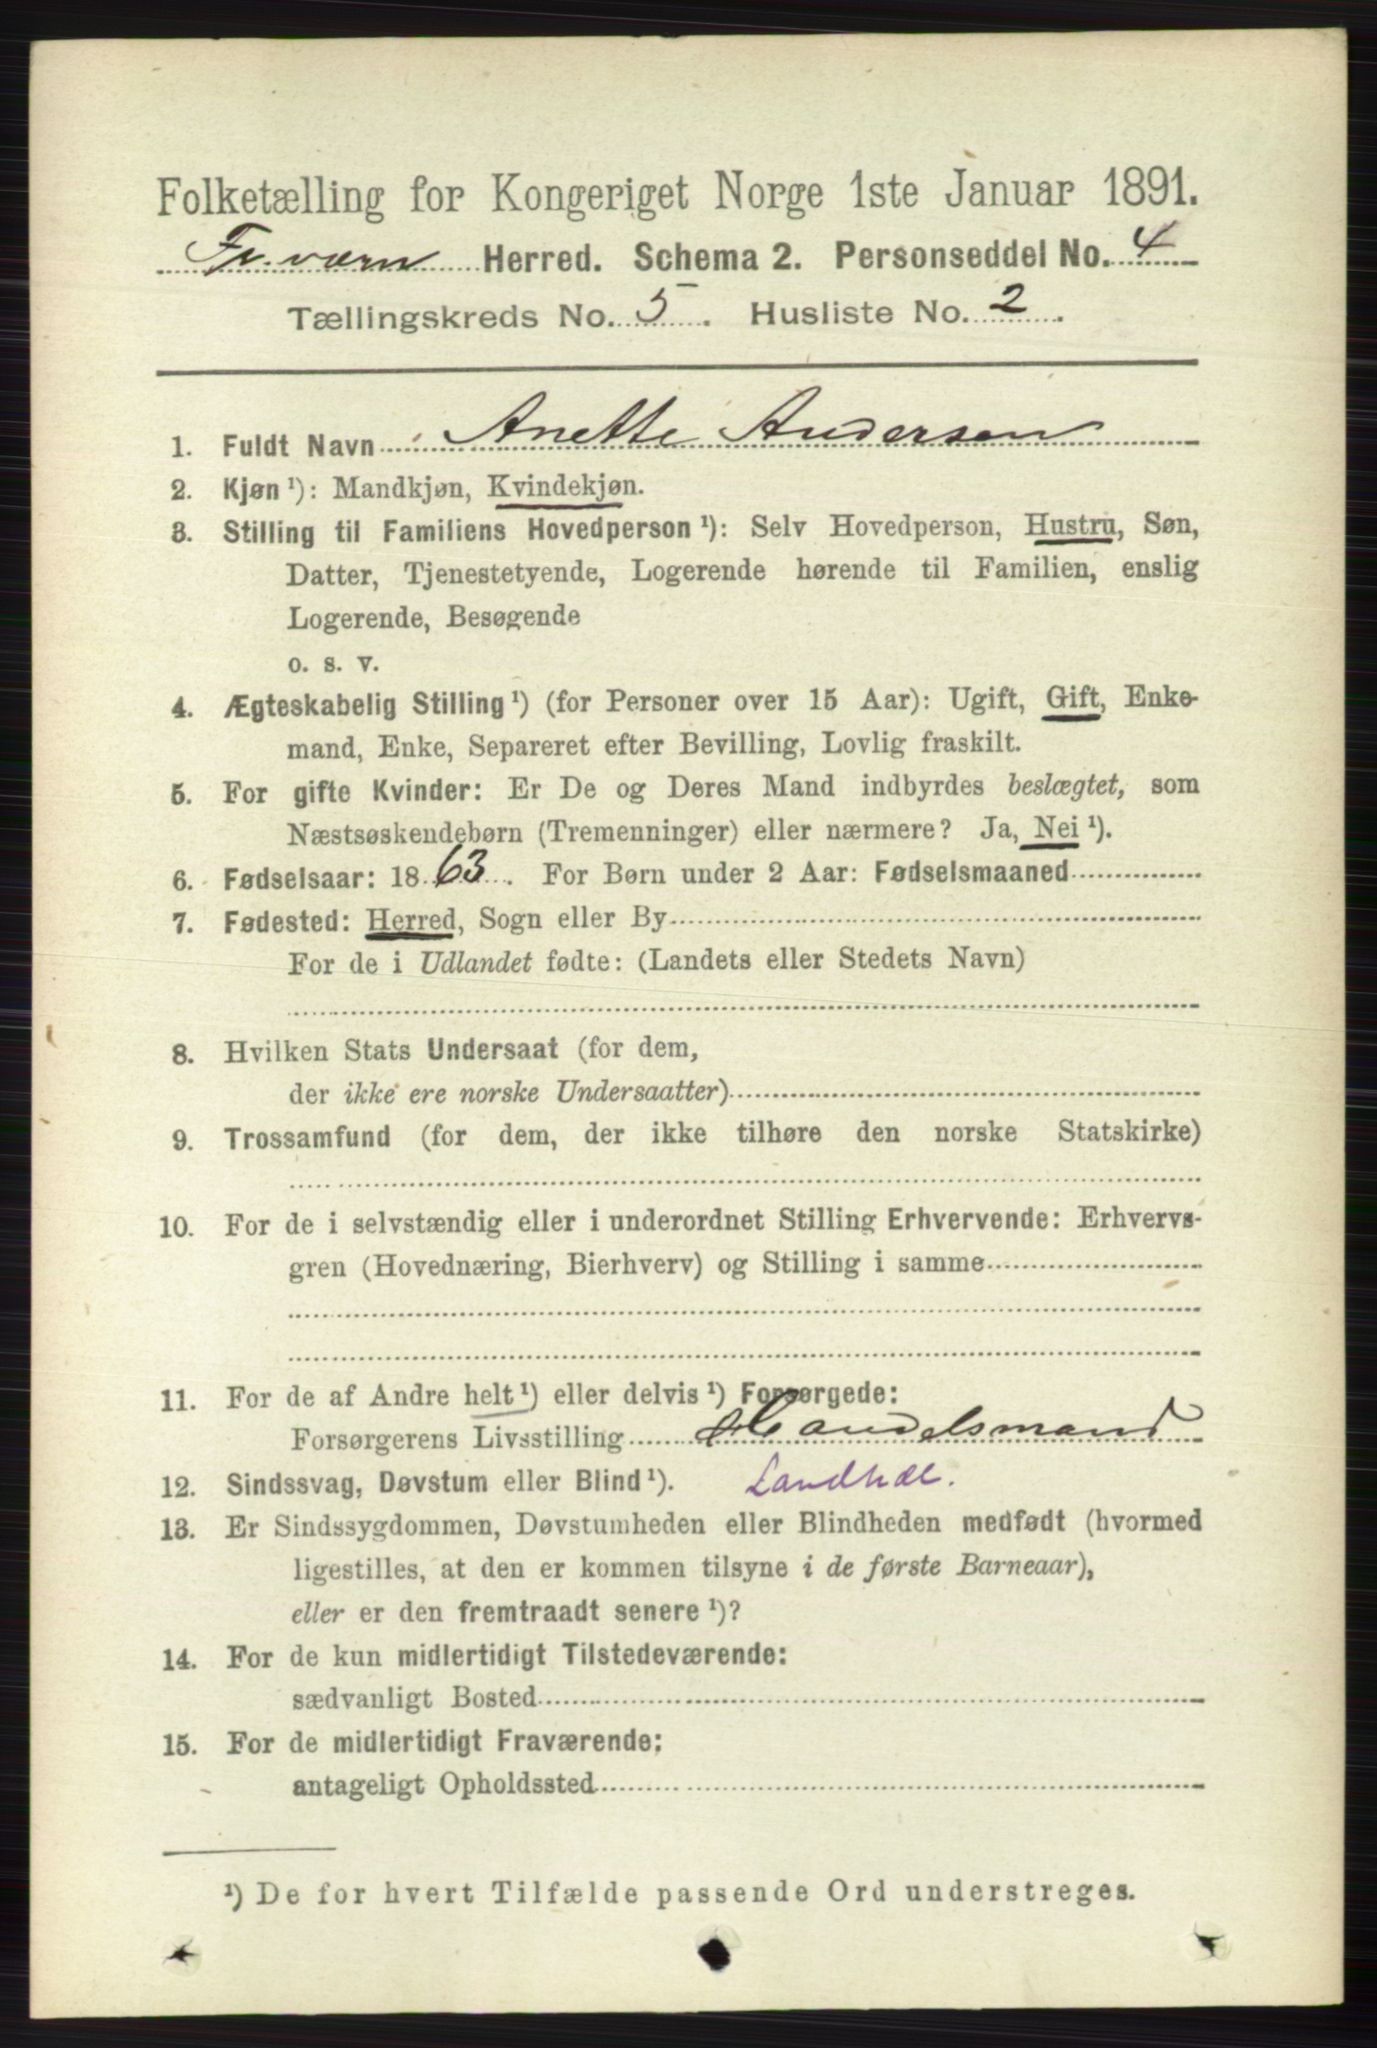 Folketælling for Kongeriget Norge 1ste Januar 1891.
Fr.værn Herred. Schema 2. Personseddel No. 4
Tællingskreds No. 5. Husliste No. 2.
1. Fuldt Navn Anette Andersen
2. Kjøn ¹): Mandkjøn, Kvindekjøn.
3. Stilling til Familiens Hovedperson ¹): Selv Hovedperson, Hustru, Søn,
Datter, Tjenestetyende, Logerende hørende til Familien, enslig
Logerende, Besøgende
o. s. v.
4. Ægteskabelig Stilling ¹) (for Personer over 15 Aar): Ugift, Gift, Enke-
mand, Enke, Separeret efter Bevilling, Lovlig fraskilt.
5. For gifte Kvinder: Er De og Deres Mand indbyrdes beslægtet, som
Næstsøskendebørn (Tremenninger) eller nærmere? Ja, Nei ¹).
6. Fødselsaar: 1863. For Børn under 2 Aar: Fødselsmaaned
7. Fødested: Herred, Sogn eller By
For de i Udlandet fødte: (Landets eller Stedets Navn)
8. Hvilken Stats Undersaat (for dem,
der ikke ere norske Undersaatter)
9. Trossamfund (for dem, der ikke tilhøre den norske Statskirke)
10. For de i selvstændig eller i underordnet Stilling Erhvervende: Erhvervs-
gren (Hovednæring, Bierhverv) og Stilling i samme
11. For de af Andre helt ¹) eller delvis ¹) Forsørgede:
Forsørgerens Livsstilling Handelsmand
12. Sindssvag, Døvstum eller Blind ¹). Landhdl.
13. Er Sindssygdommen, Døvstumheden eller Blindheden medfødt (hvormed
ligestilles, at den er kommen tilsyne i de første Barneaar),
eller er den fremtraadt senere ¹)?
14. For de kun midlertidigt Tilstedeværende:
sædvanligt Bosted
15. For de midlertidigt Fraværende:
antageligt Opholdssted
¹) De for hvert Tilfælde passende Ord understreges.